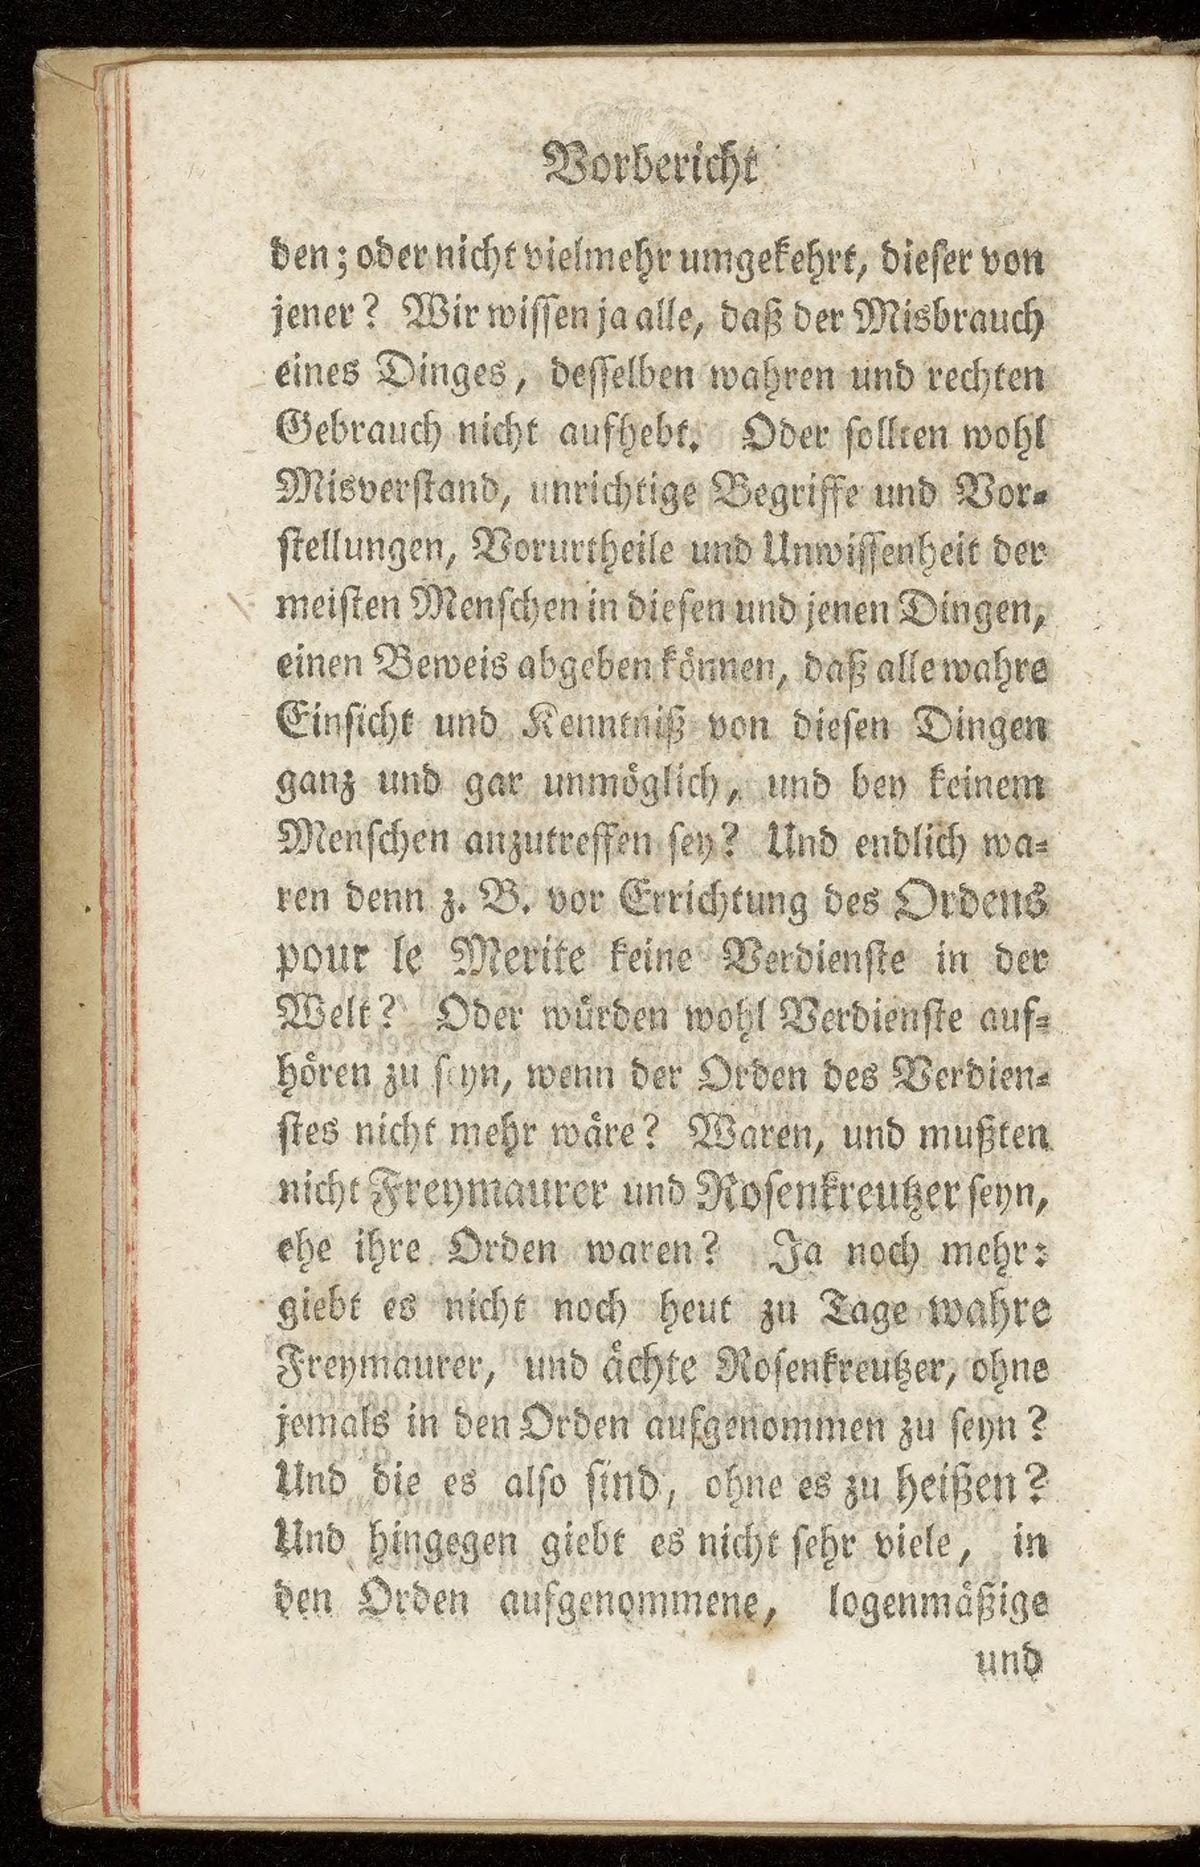 Vorbericht
den; oder nicht vielmehr umgekehrt, dieser von
jener? Wir wissen ja alle, daß der Misbrauch
eines Dinges, desselben wahren und rechten
Gebrauch nicht aufhebt. Oder sollten wohl
Misverstand, unrichtige Begriffe und Vor-
stellungen, Vorurtheile und Unwissenheit der
meisten Menschen in diesen und jenen Dingen,
einen Beweis abgeben können, daß alle wahre
Einsicht und Kenntniß von diesen Dingen
ganz und gar unmöglich, und bey keinem
Menschen anzutreffen sey? Und endlich wa-
ren denn z. B. vor Errichtung des Ordens
pour le Merite keine Verdienste in der
Welt? Oder würden wohl Verdienste auf-
hören zu seyn, wenn der Orden des Verdien-
stes nicht mehr wäre? Waren, und mußten
nicht Freymaurer und Rosenkreutzer seyn,
ehe ihre Orden waren? Ja noch mehr:
giebt es nicht noch heut zu Tage wahre
Freymaurer, und ächte Rosenkreutzer, ohne
jemals in den Orden aufgenommen zu seyn?
Und die es also sind, ohne es zu heißen?
Und hingegen giebt es nicht sehr viele, in
den Orden aufgenommene, logenmäßige
und